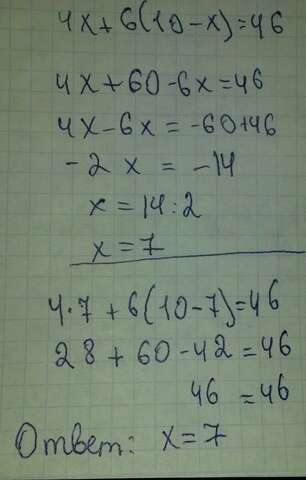 4x+6(10-x)=46
4x+60-6x=46
4x-6x=-60+46
-2x=-14
x=14:2
x=7
4·7+6(10-7)=46
28+60-42=46
46=46
Ответ: x=7